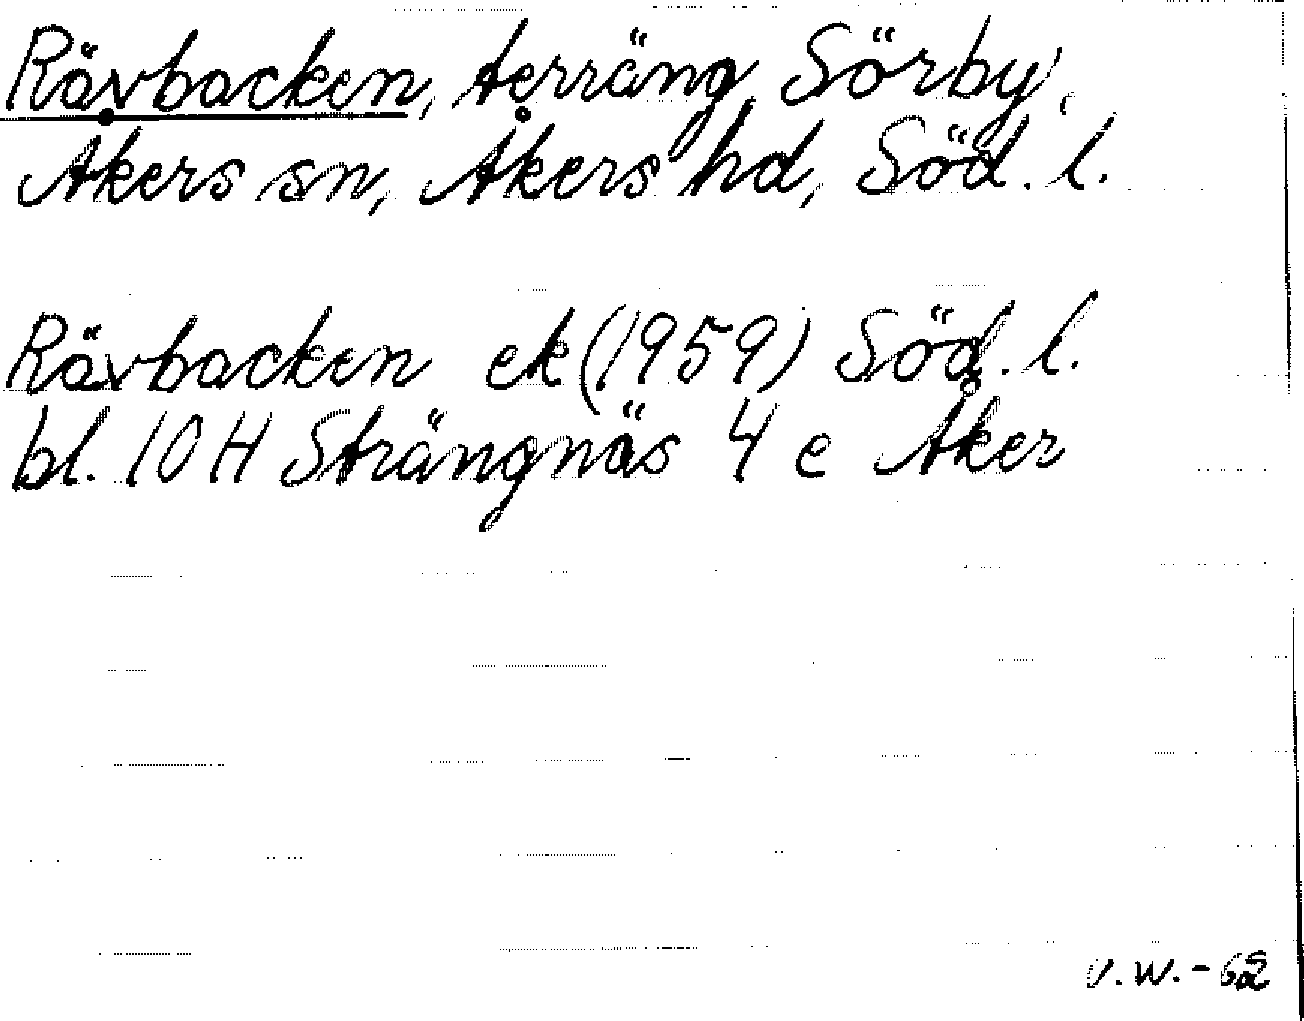 Rävbacken, terräng, Sörby,
Åkers sn, Åkers hd, Söd. l.
Rävbacken ek (1959) Söd. l.
bl. 10 H Strängnäs 4 e Åker
V.W. - 62